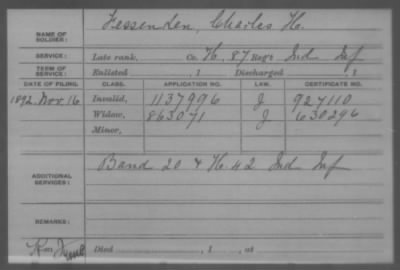 NAME OF SOLDIER: Fessenden, Charles H.
SERVICE: Late rank, Co. H, 87 Reg't Ind Inf
TERM OF SERVICE: Enlisted , 1 Discharged , 1
DATE OF FILING. CLASS. APPLICATION NO. LAW. CERTIFICATE NO.
1892. Nov. 16 Invalid, 1137996 J 927110
Widow, 863071 J 630296
Minor,
ADDITIONAL SERVICES: Band 20 & H. 42 Ind Inf
REMARKS:
Died , 1 , at